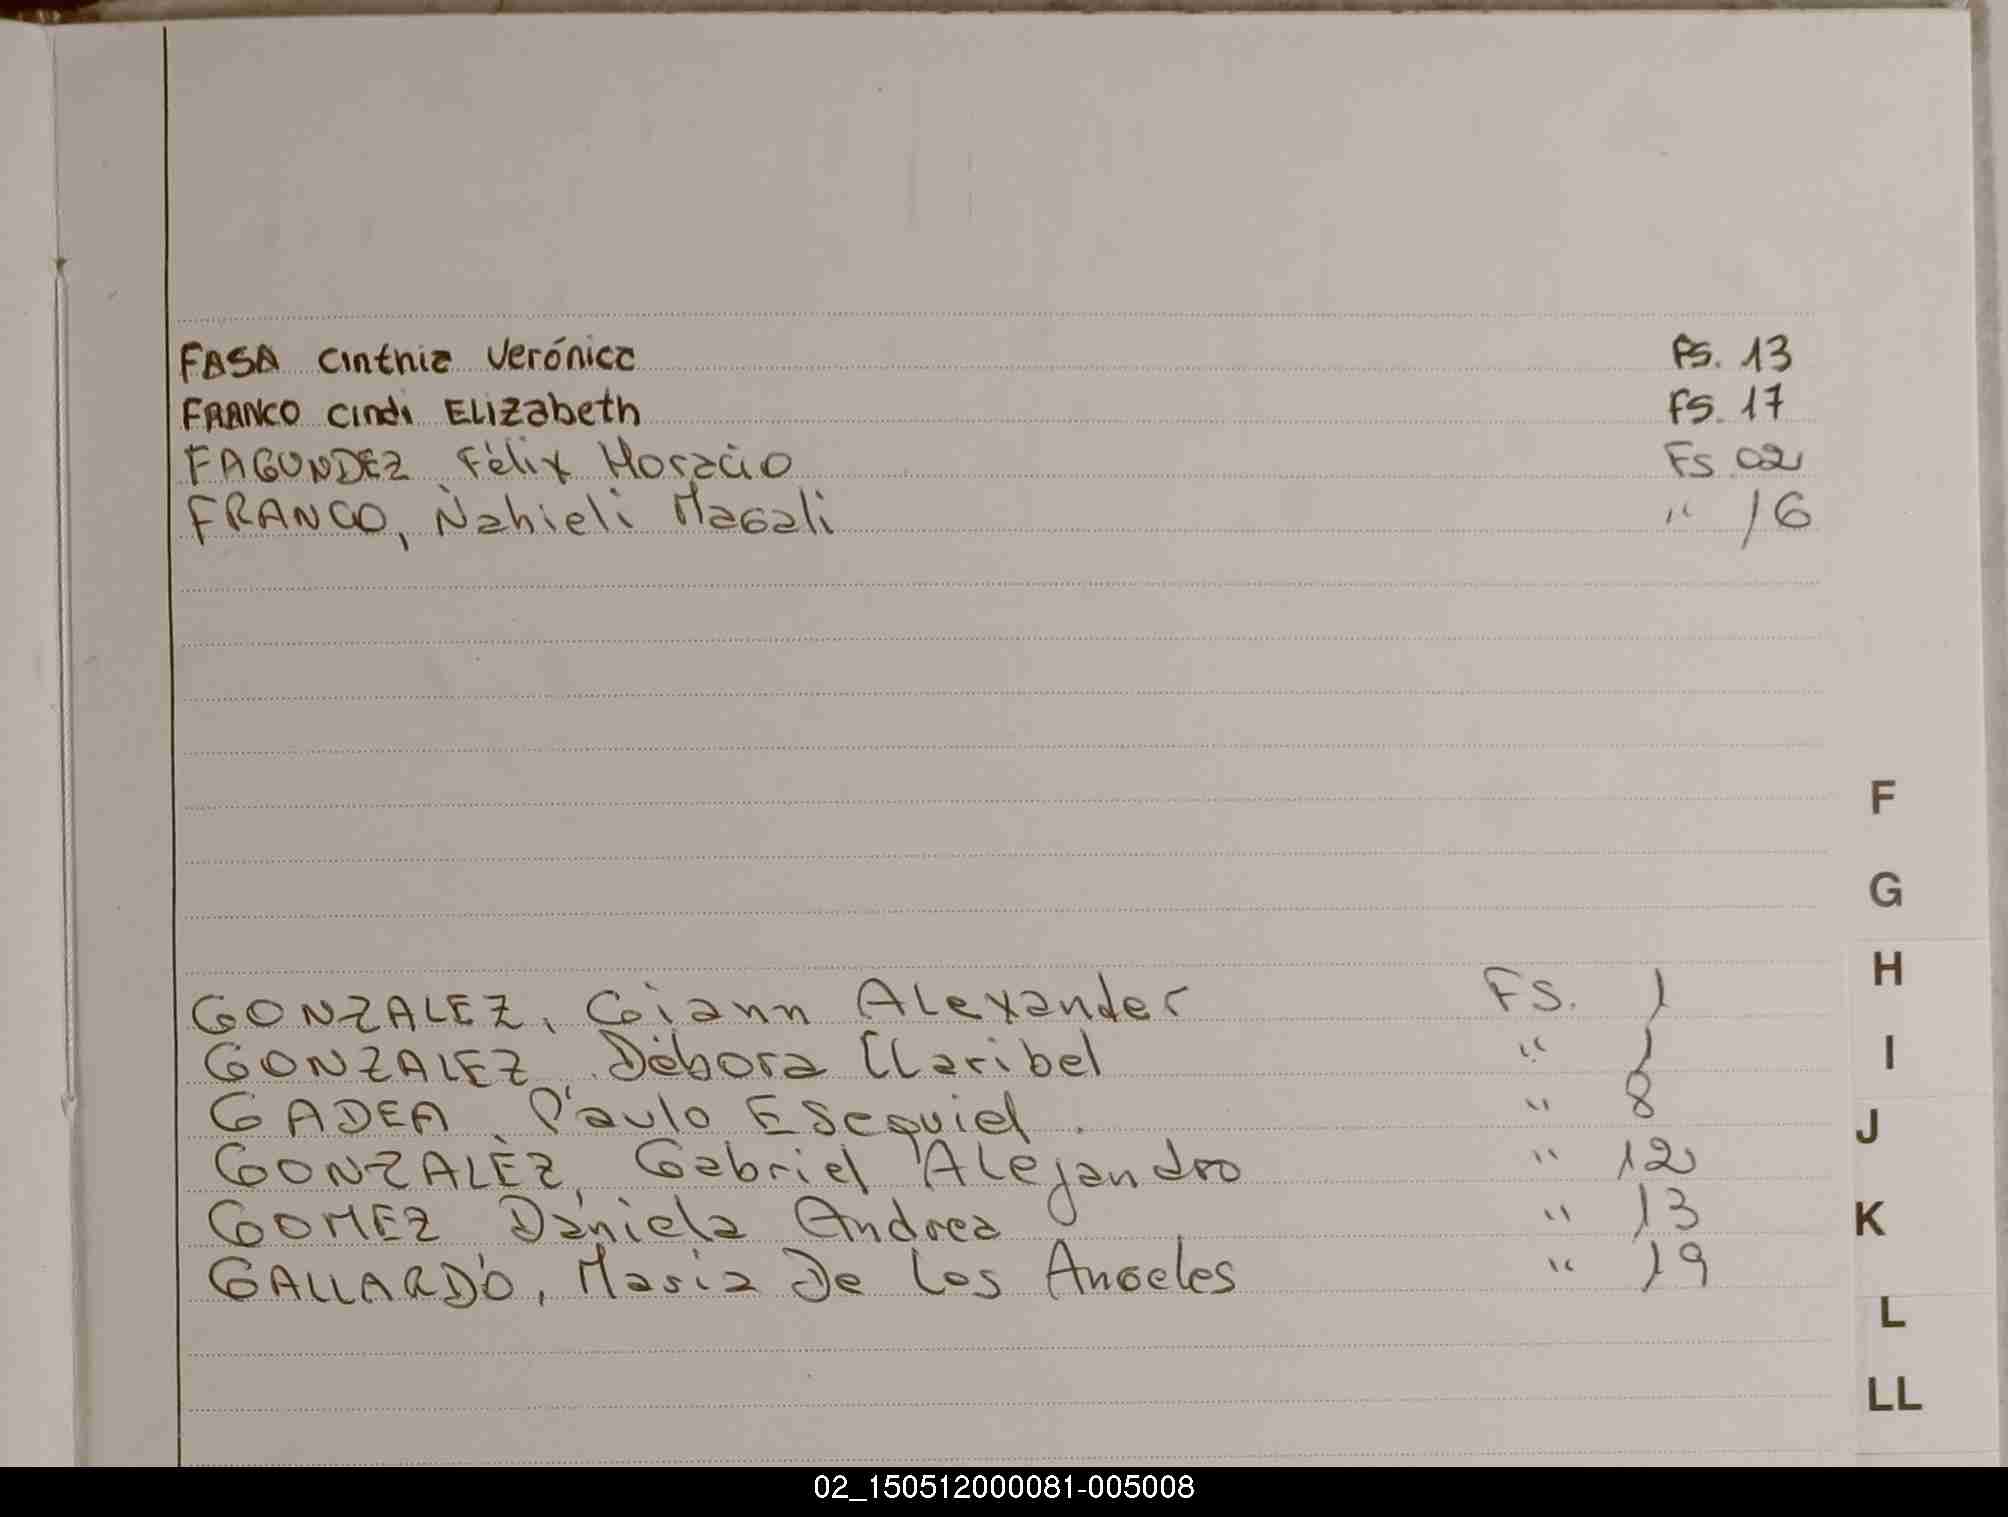 FASA Cinthia Verónica Fs. 13
FRANCO Cindi ELIZabeth FS. 17
FAGUNDEZ Félix Horacio FS 02
FRANCO, Nahieli Magali " 16
F
G
H
GONZALEZ, Giann Alexander FS. 1
GONZALEZ, Débora Claribel " 1
I
GADEA, Paulo Esequiel. " 8
J
GONZALEZ, Gabriel Alejandro " 12
GOMEZ Daniela Andrea " 13
K
GALLARDO, Maria De Los Angeles " 19
L
LL
02_150512000081-005008